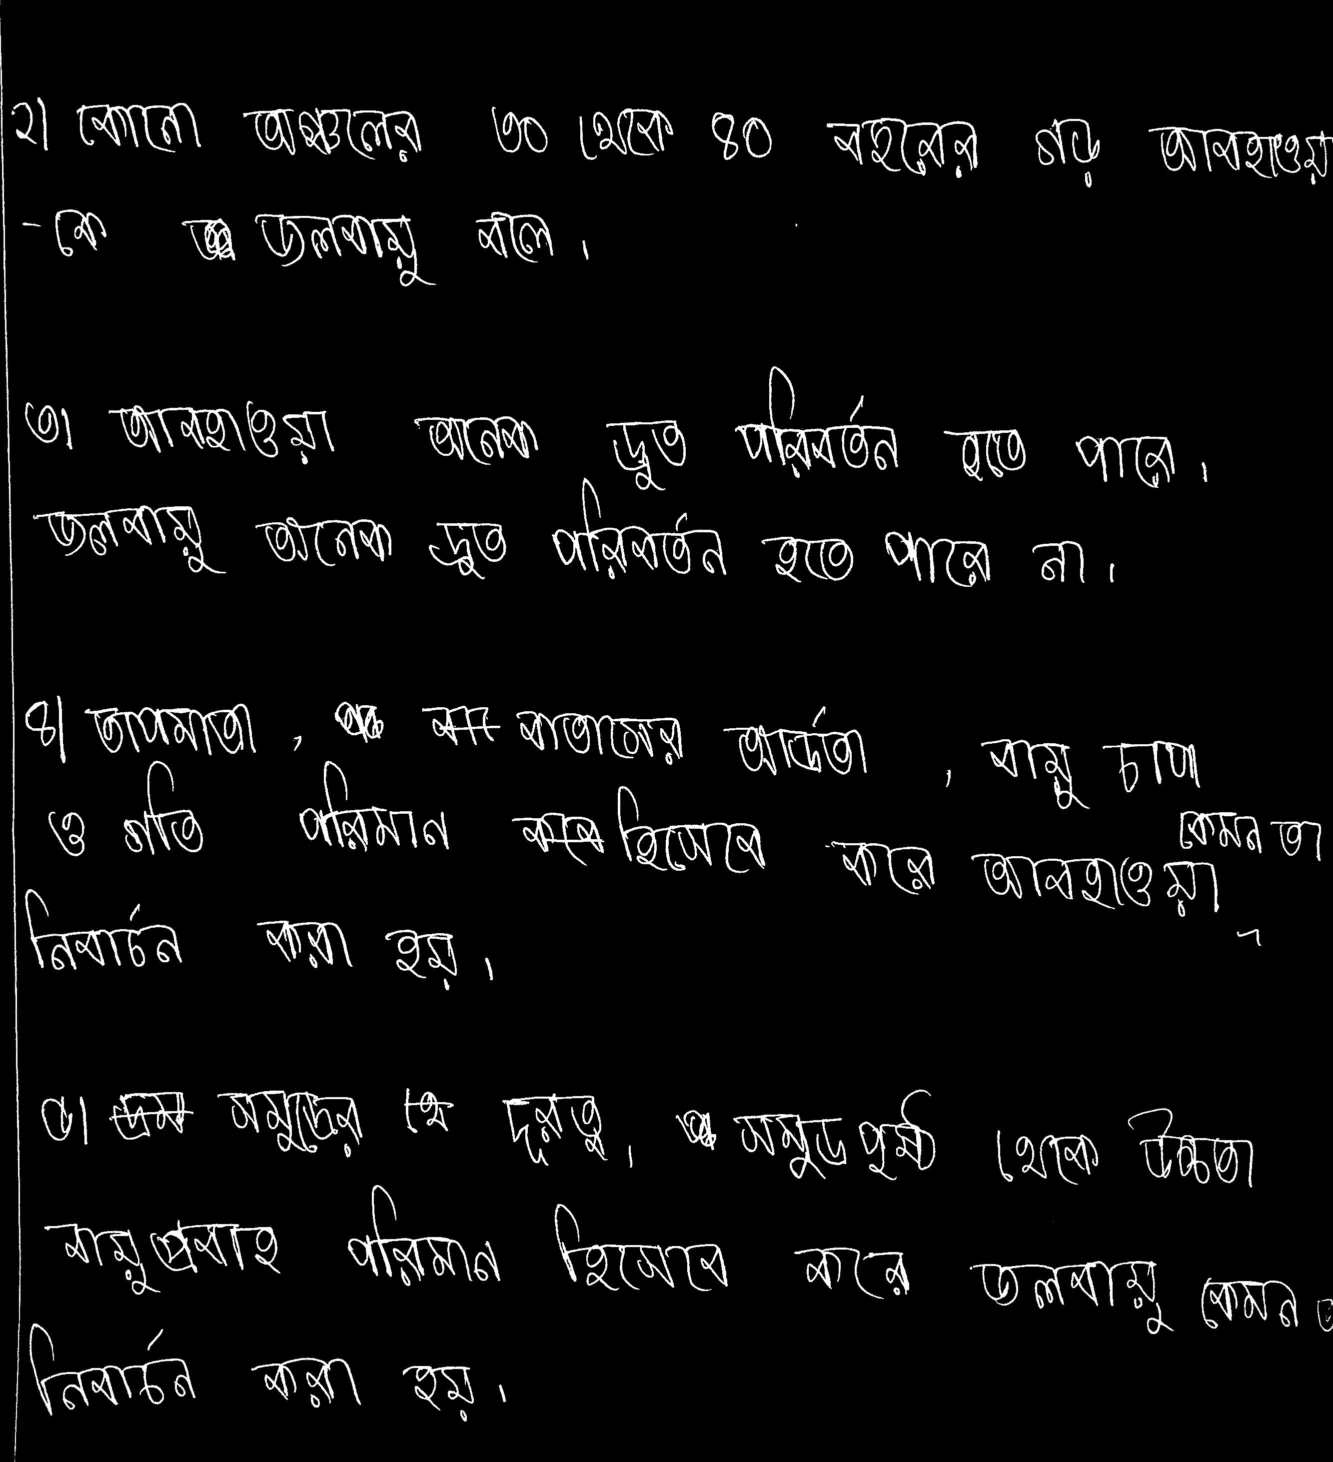 ২। কোনো অঞ্চলের ৩০ থেকে ৪০ বছরের গড় আবহাওয়া
-কে জলবায়ু বলে।
৩। আবহাওয়া অনেক দ্রুত পরিবর্তন হতে পারে।
জলবায়ু অনেক দ্রুত পরিবর্তন হতে পারে না।
৪। তাপমাত্রা, বাতাসের আর্দ্রতা, বায়ু চাপ
ও গতি পরিমান হিসেবে করে আবহাওয়া কেমন তা
নিবার্চন করা হয়।
৫। সমুদ্রের দূরত্ব, সমুদ্র পৃষ্ঠ থেকে উচ্চতা
বায়ুপ্রবাহ পরিমান হিসেবে করে জলবায়ু কেমন
নিবার্চন করা হয়।